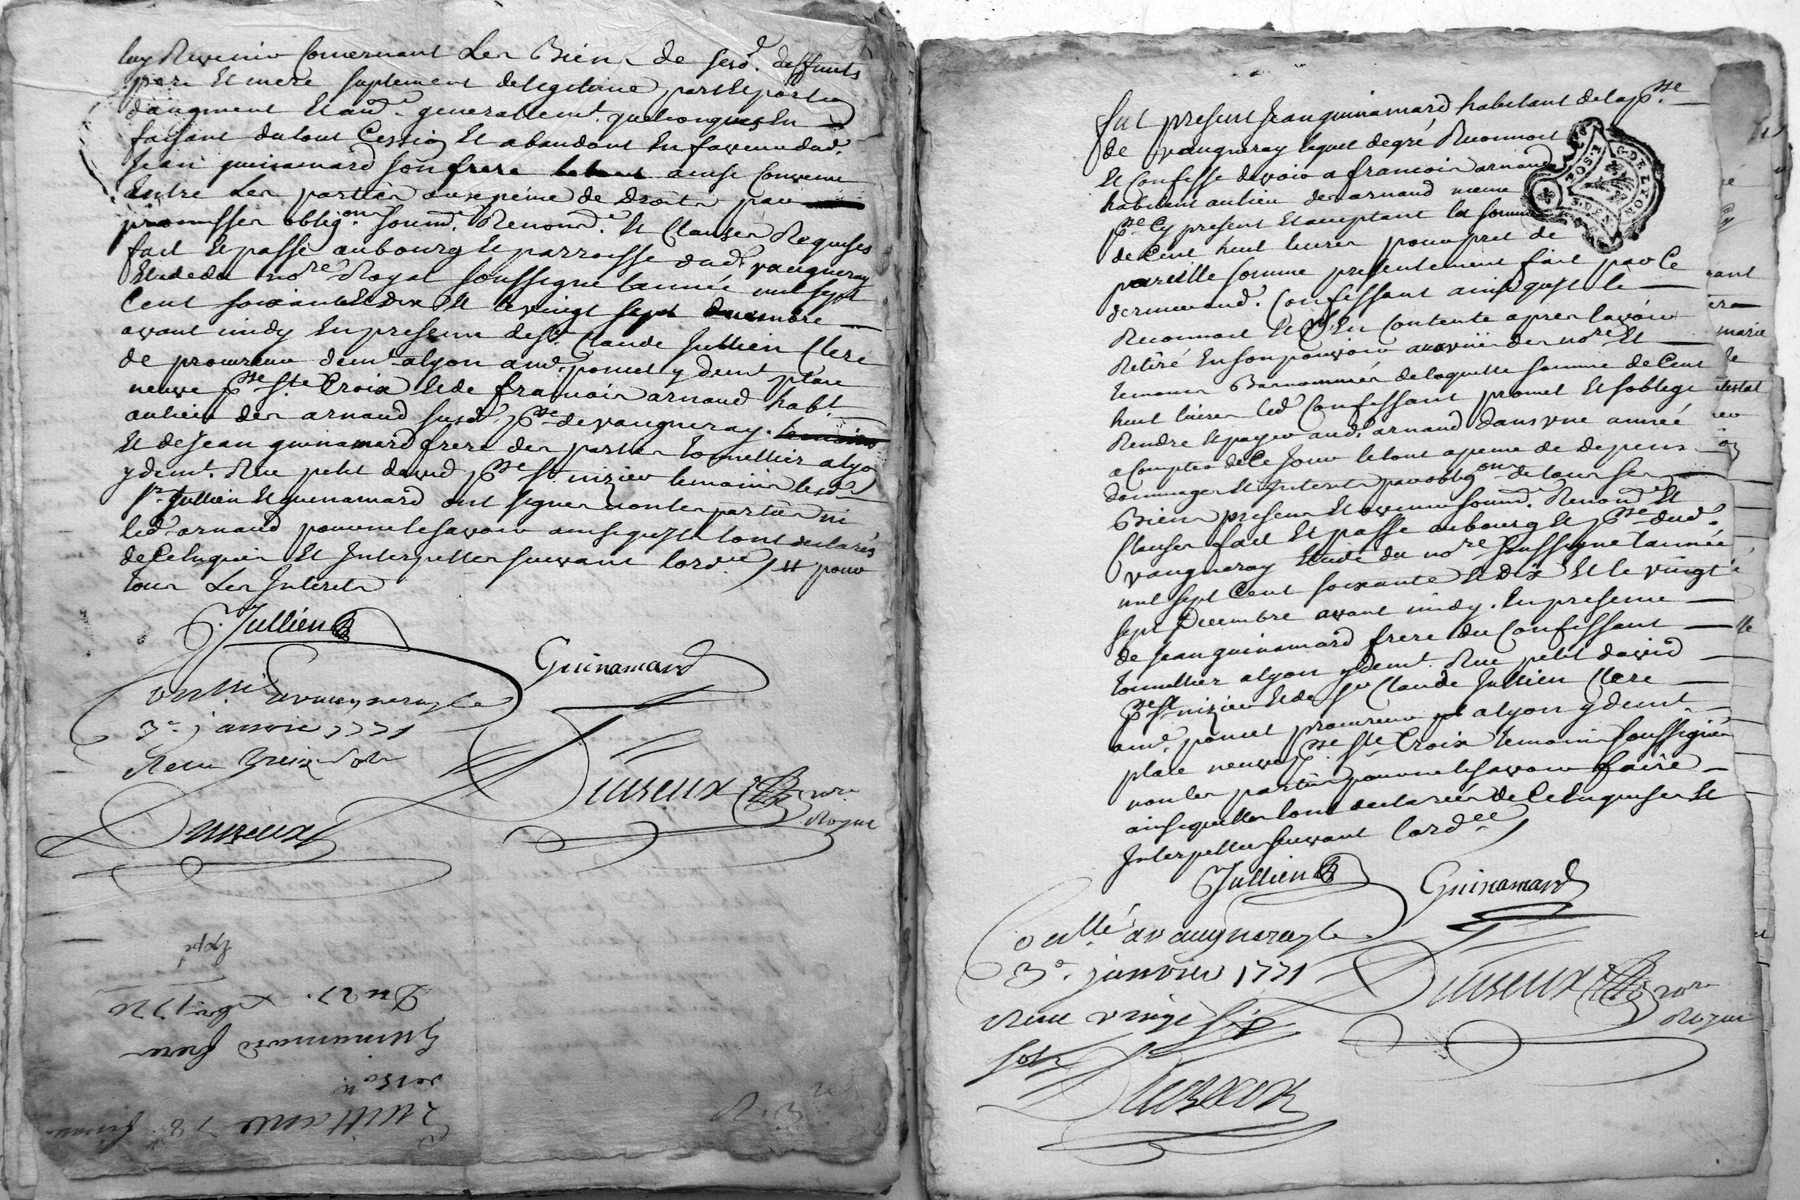 luy Revenir Concernant Les Biens de sesd. deffunts
pere Et mere suplement de legitime part Et portion
daugment Et autre generallemt. quelconques En
faisant du tout Cession Et abandont En faveur dud.
Jean guinamard son frere ainsi Convenu
Entre Les parties aux peine de Droits par
promisses obligon. soumd. Renond. Et Clauses Requises
fait Et passé au bourg Et parroisse dud vaugneray
Etude du nore Royal soussigné lannée mil sept
Cent soixante Et dix Et le vingt sept decembre
avant midy En presence de sr Claude Jullien Clerc
de procureur demt. a lyon ande. poncet y demt place
neuve psse. ste. Croix Et de francois arnaud habt.
au lieu des arnaud susd. psse. de vaugneray
Et de Jean guinamard frere des parties tonnellier a lyon
y demt. Rue petit david psse st. nizier temoins lesd.
sr. Jullien Et guinamard ont signer non les parties ni
led. arnaud pour ne le savoir ainsi quils lont declarés
de Ce Enquis Et Interpellés suivant lordce / # pour
tous Les Interets
C. Jullien
Guinamard
Contllé. a vaugneray le
3e. janvier 1771
Recu treize sols
Dutreux nore.
Royal
Dutreux
Quittance 78
Guinamard frere
Du 27. xbre 1770
Expé
fut present Jean guinamard habitant de la psse.
de vaugneray lequel de gré Reconnoit
Et Confesse devoir a francois arnaud
habitant au lieu des arnaud meme
psse Cy present Et acceptant la somme
de Cent huit livres pour pret de
pareille somme presentement fait par Ce
dernier aud. Confessant ainsi quil le
Reconnoit Et sen Contente apres lavoir
Retiré En son pouvoir au vû des nore. Et
temoins Bas nommés de laquelle somme de Cent
huit livres led. Confessant promet Et soblige
Rendre Et payer aud. arnaud dans une année
a Compter de Ce Jour le tout a peine de depens
dommages Et Interets par oblig.on de tous ses
Biens presens Et avenir soumd. Renond. Et
Clauses fait Et passé au bourg Et psse. dud.
vaugneray Etude du nore soussigné lannée
mil sept Cent soixante Et dix Et le vingt
sept Decembre avant midy. En presence
de Jean guinamard frere du Confessant
tonnellier a lyon y demt. Rue petit david
psse st nizier Et de sr Claude Jullien Clerc
ande. poncet procureur a lyon y demt.
place neuve psse. ste Croix temoins soussignés
non les parties pour ne le savoir faire
ainsi quelles lont declarées de Ce Enquises Et
Interpellés suivant lordce /
C. Jullien
Guinamard
Contllé a vaugneray le
3e. janvier 1771
Recu vingt six
sols
Dutreux nore
Royal
Dutreux
G. DE LYON